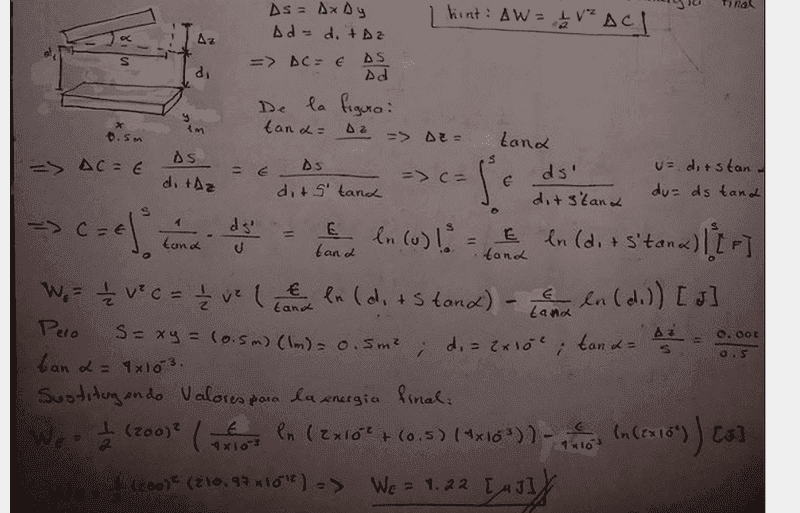 Δs = Δx Δy
hint: ΔW = 1/2 V² ΔC
Δd = d₁ + Δz
α
Δz
s
d₁
d₁
=> ΔC = ε Δs/Δd
y
1m
x
0.5m
De la figura:
tan α = Δz => Δz = tan α
=> ΔC = ε Δs/(d₁ + Δz) = ε Δs/(d₁ + s' tan α) => C = ∫₀ˢ ε ds'/(d₁ + s' tan α)
u = d₁ + s tan α
du = ds tan α
=> C = ε ∫₀ˢ 1/tan α · ds'/u = ε/tan α ln(u)|₀ˢ = ε/tan α ln(d₁ + s' tan α)|₀ˢ [F]
Wε = 1/2 V² C = 1/2 V² (ε/tan α ln(d₁ + s tan α) - ε/tan α ln(d₁)) [J]
Pero S = xy = (0.5m)(1m) = 0.5m² ; d₁ = 2x10⁻² ; tan α = Δz/s = 0.002/0.5
tan α = 4x10⁻³.
Sustituyendo Valores para la energia final:
Wε = 1/2 (200)² (ε/4x10⁻³ ln(2x10⁻² + (0.5)(4x10⁻³)) - ε/4x10⁻³ ln(2x10⁻²)) [J]
(200)² (210.97x10⁻¹²) => Wε = 4.22 [μJ]